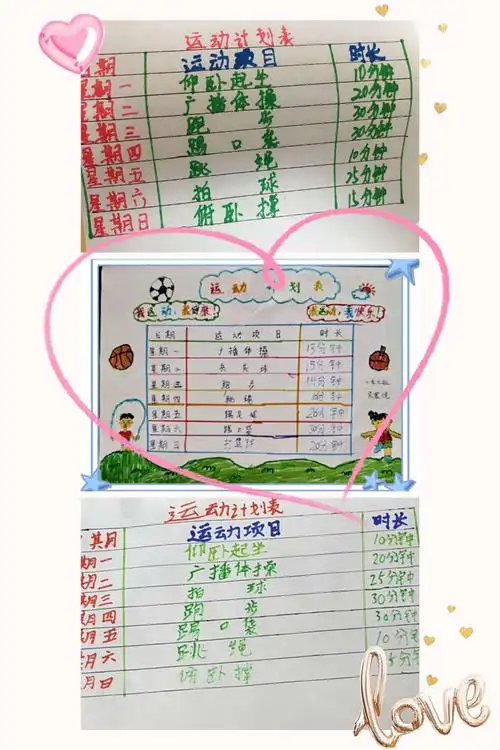 运动计划表
期 运动项目 时长
星期一 仰卧起坐 10分钟
星期二 广播体操 20分钟
星期三 跑步 30分钟
星期四 踢口袋 30分钟
星期五 跳绳 10分钟
星期六 拍球 25分钟
星期日 俯卧撑 15分钟
运动计划表
我运动,我健康! 我运动,我快乐!
日期 运动项目 时长
星期一 广播体操 15分钟
星期二 乒乓球 15分钟
星期三 跑步 14分钟
星期四 跳绳 分钟
星期五 踢足球 20分钟
星期六 踢口袋 30分钟
星期 20分钟
运动计划表
期 运动项目 时长
期一 仰卧起坐 10分钟
期二 广播体操 20分钟
期三 拍球 25分钟
期四 跑步 30分钟
期五 踢口袋 30分钟
期六 跳绳 10分
期日 俯卧撑 5分钟
love